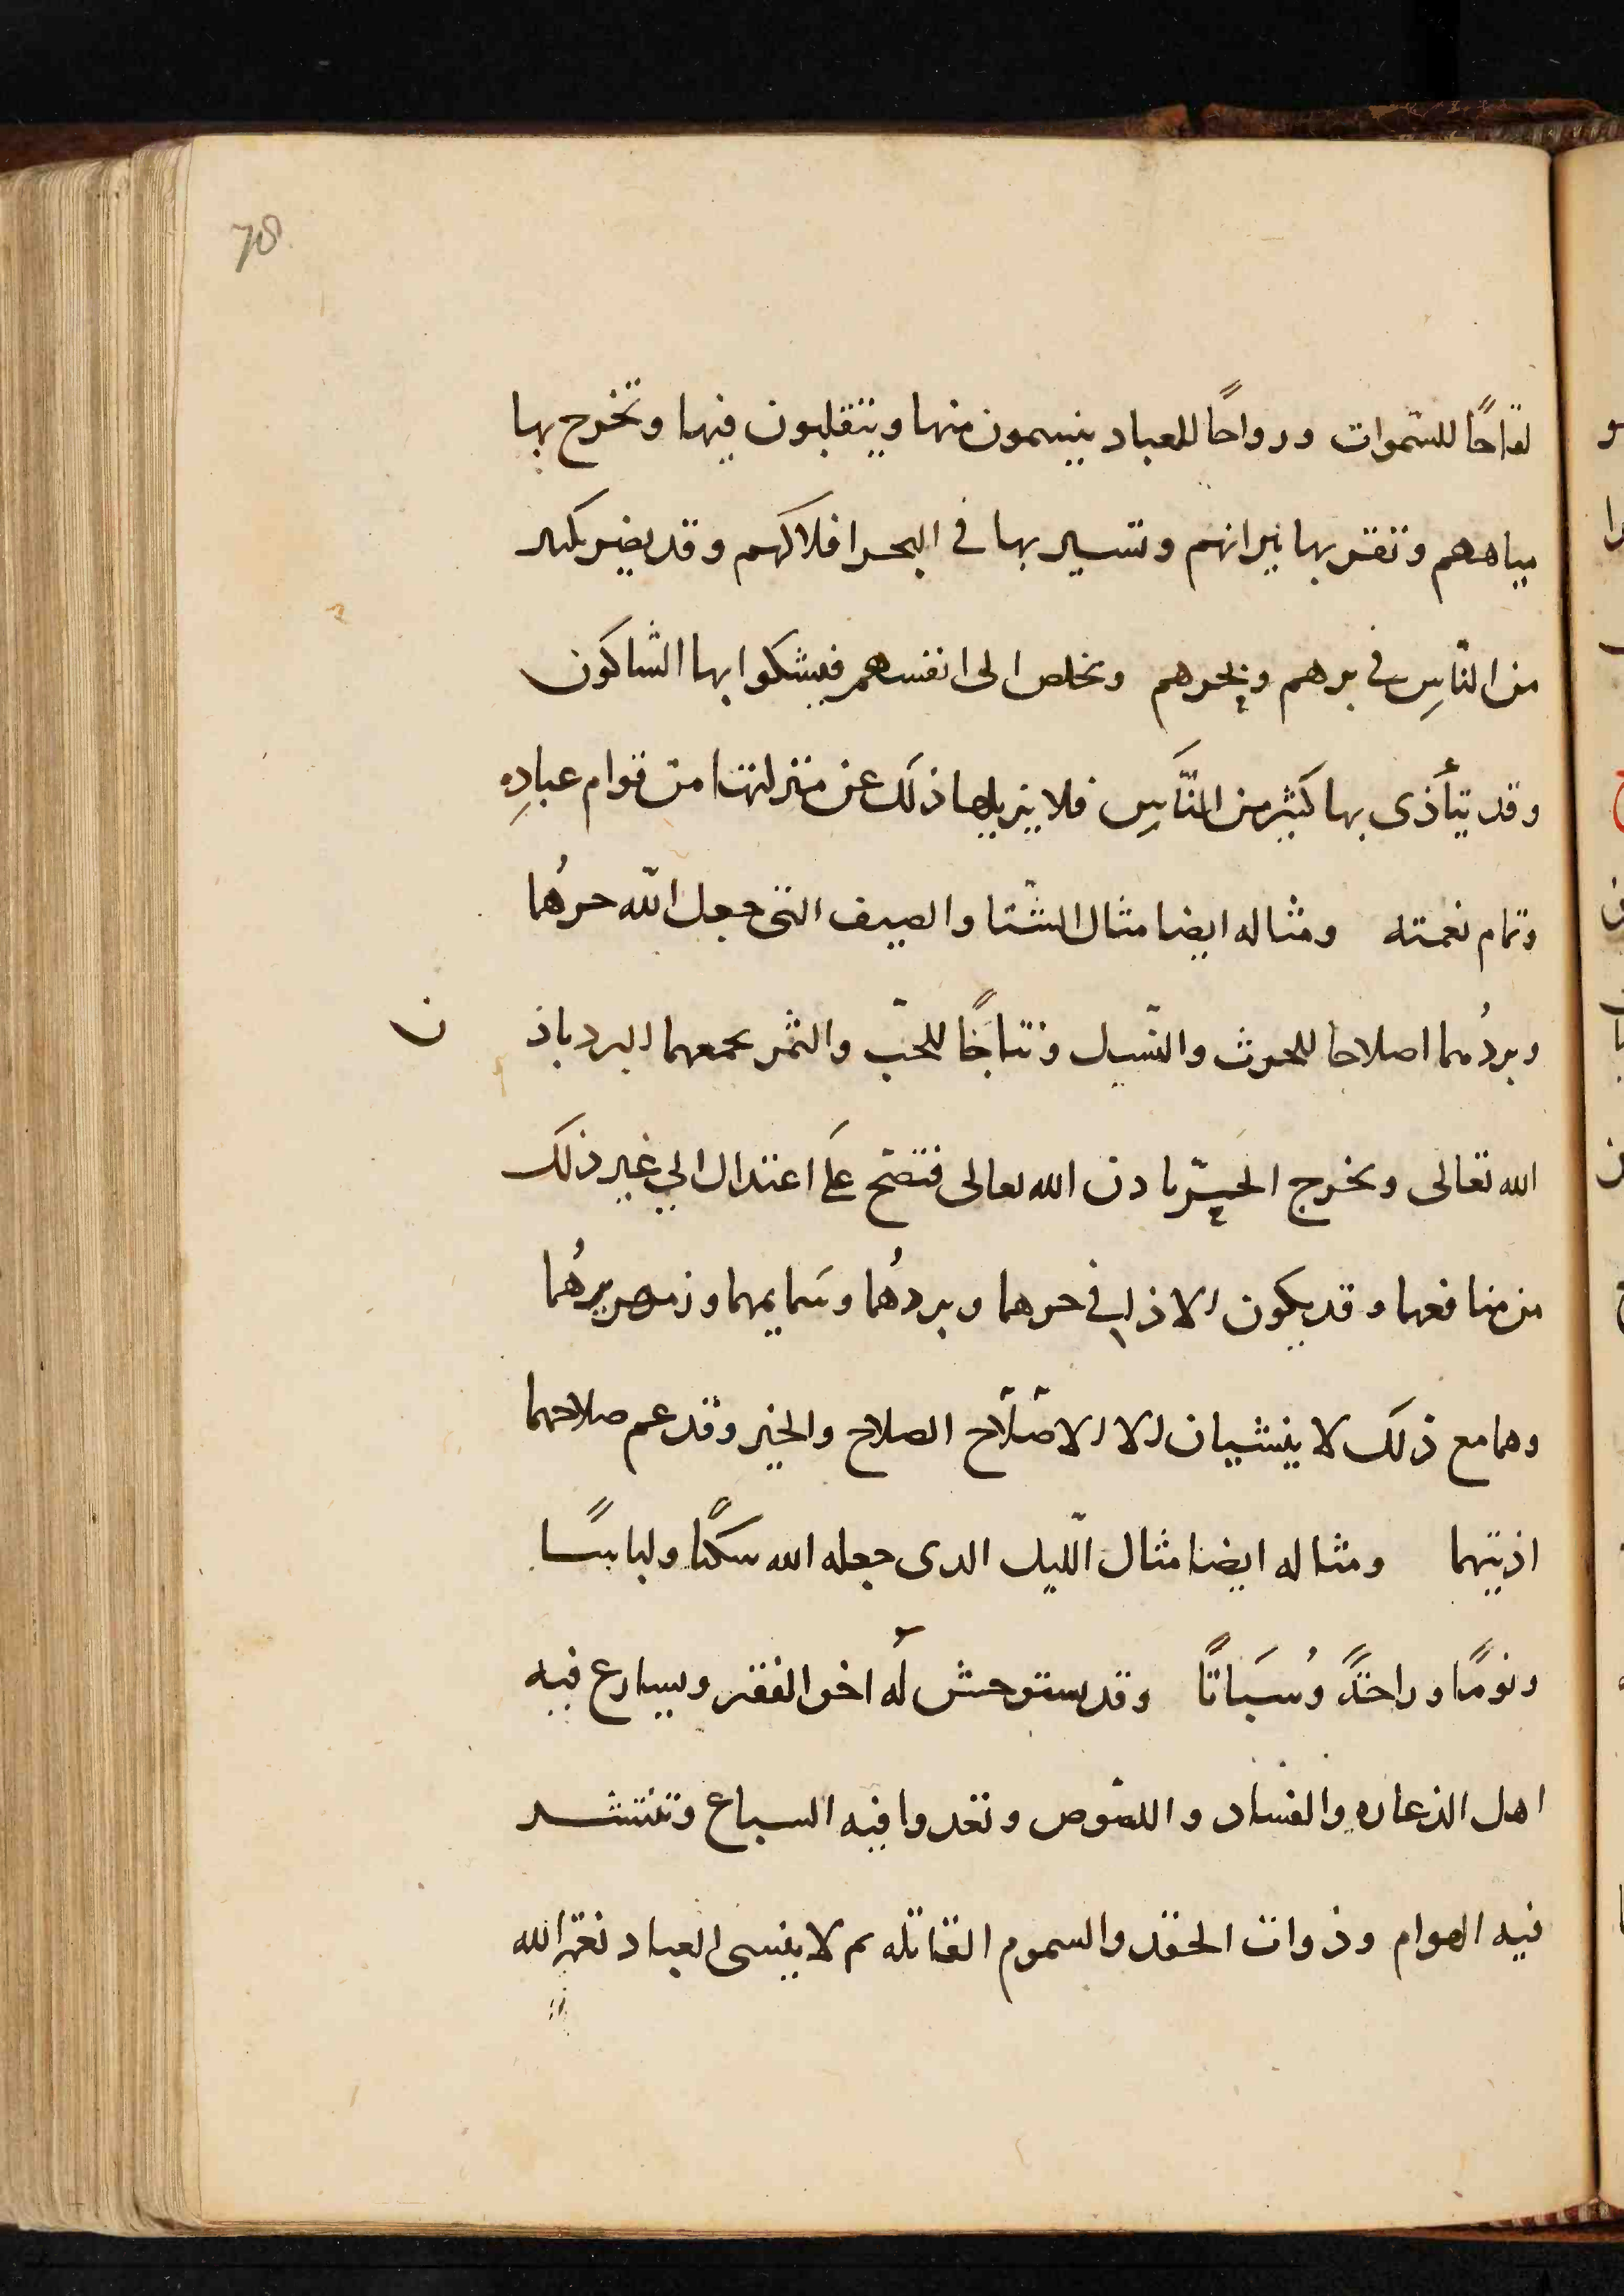 78
لقاحًا للسّموات ورواحًا للعباد ينسمون منها ويتقلبون فيها وتخرج بها
مياههم وتقر بها نيرانهم وتسير بها في البحر افلاكهم وقد يضر بكثير
من النّاسِ في برهم وبحرهم ويخلص الى انفسهم فيشكوا بها الشّاكون
وقد يتأذى بها كثير من النّاسِ فلا يزيلها ذلك عن منزلتها من قوام عبادِه
وتمام نعمته ومثاله ايضا مثال الشّتا والصيف التي جعل الله حرهُما
وبردُهما اصلاحا للحرث والنّسيل ونتاجًا للحبّ والثّمر يجمعهما البرد باذ ن
الله تعالى ويخرج الحرّ بادن الله تعالى فتصح علَى اعتدال الي غير ذلك
من منافعها وقد يكون الاذاي في حرهما وبردهُما وسَمايمهما وزمهريرهُما
وهما مع ذلك لا ينشيان الا الاصّلاّح الصلاح والخير وقد عم صلاحهما
اذيتهما ومثاله ايضا مثال الّليل الدى جعله الله سكنًا ولباسًا
ونومًا وراحةً وُسَباتًا وقد يستوحش له اخو الفقر ويسارع فيه
اهل الذعاره والفساد واللصّوص وتغدوا فيه السباع وتنتشر
فيه الهوام وذوات الحقد والسموم القاتله م لا ينسى العباد نعم الله